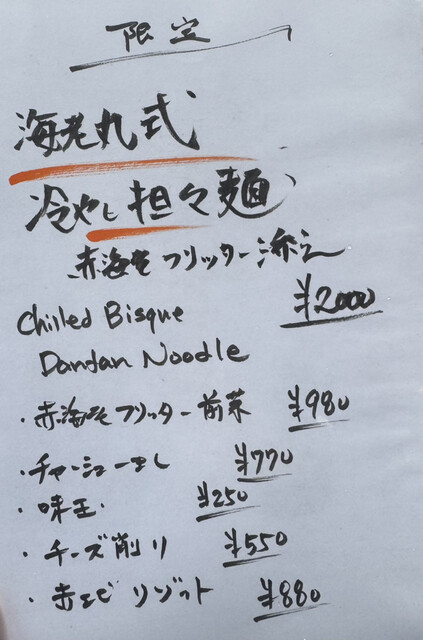 限定
海老丸式
冷やし担々麺
赤海老フリッター添え
¥2000
Chilled Bisque
Dantan Noodle
・赤海老フリッター前菜 ¥980
・チャーシュー増し ¥770
・味玉 ¥250
・チーズ削り ¥550
・赤エビリゾット ¥880